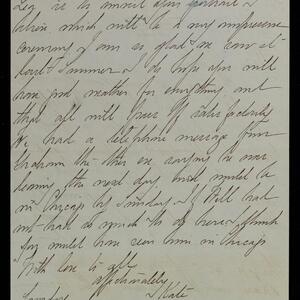 is to unveil your portrait
which will be a very impressive
ceremony I am so glad we can it
summer - I do hope you will
have good weather for everything and
that all will pass off satisfactorily
We had a telephone message from
this eve saying he was
leaving the next day and would be
in Chicago by Sunday - If Will had
not had so much to do here I think
he would have seen him in Chicago
With love to all
affectionately
Kate